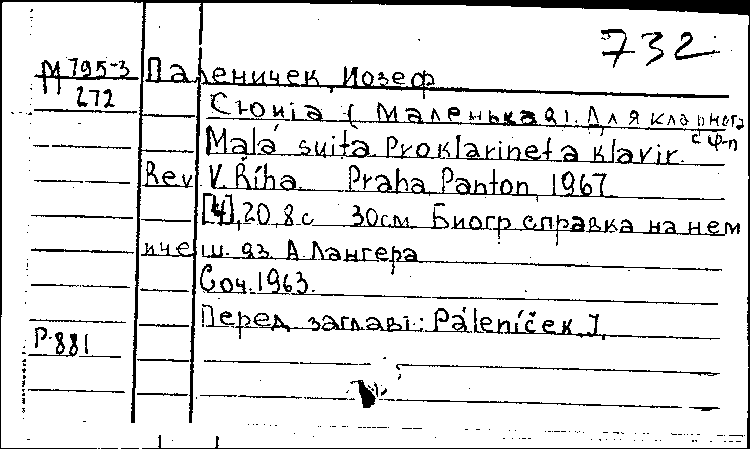 732
М 795-3
272
Паленичек, Иозеф
Сюита (Маленькая). Для кларнета
с ф-п
Malá suita. Pro klarinet a klavír.
Rev V. Říha. Praha, Panton, 1967
[4], 20, 8 с 30см. Биогр справка на нем
и че ш. яз. А. Лангера
Соч. 1963.
Перед заглаві: Páleníček J.
Р-881